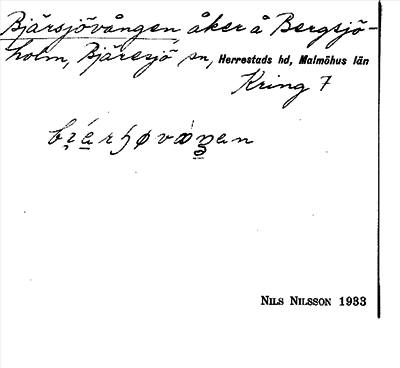 Bjärsjövången, åker å Bergsjö-
holm, Bjäresjö sn, Herrestads hd, Malmöhus län
Kring 7
NILS NILSSON 1933